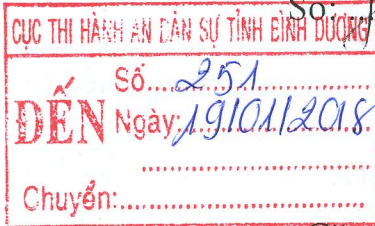 Số:
CỤC THI HÀNH ÁN DÂN SỰ TỈNH BÌNH DƯƠNG
ĐẾN
Số.....251
Ngày:19/01/2018
Chuyển: